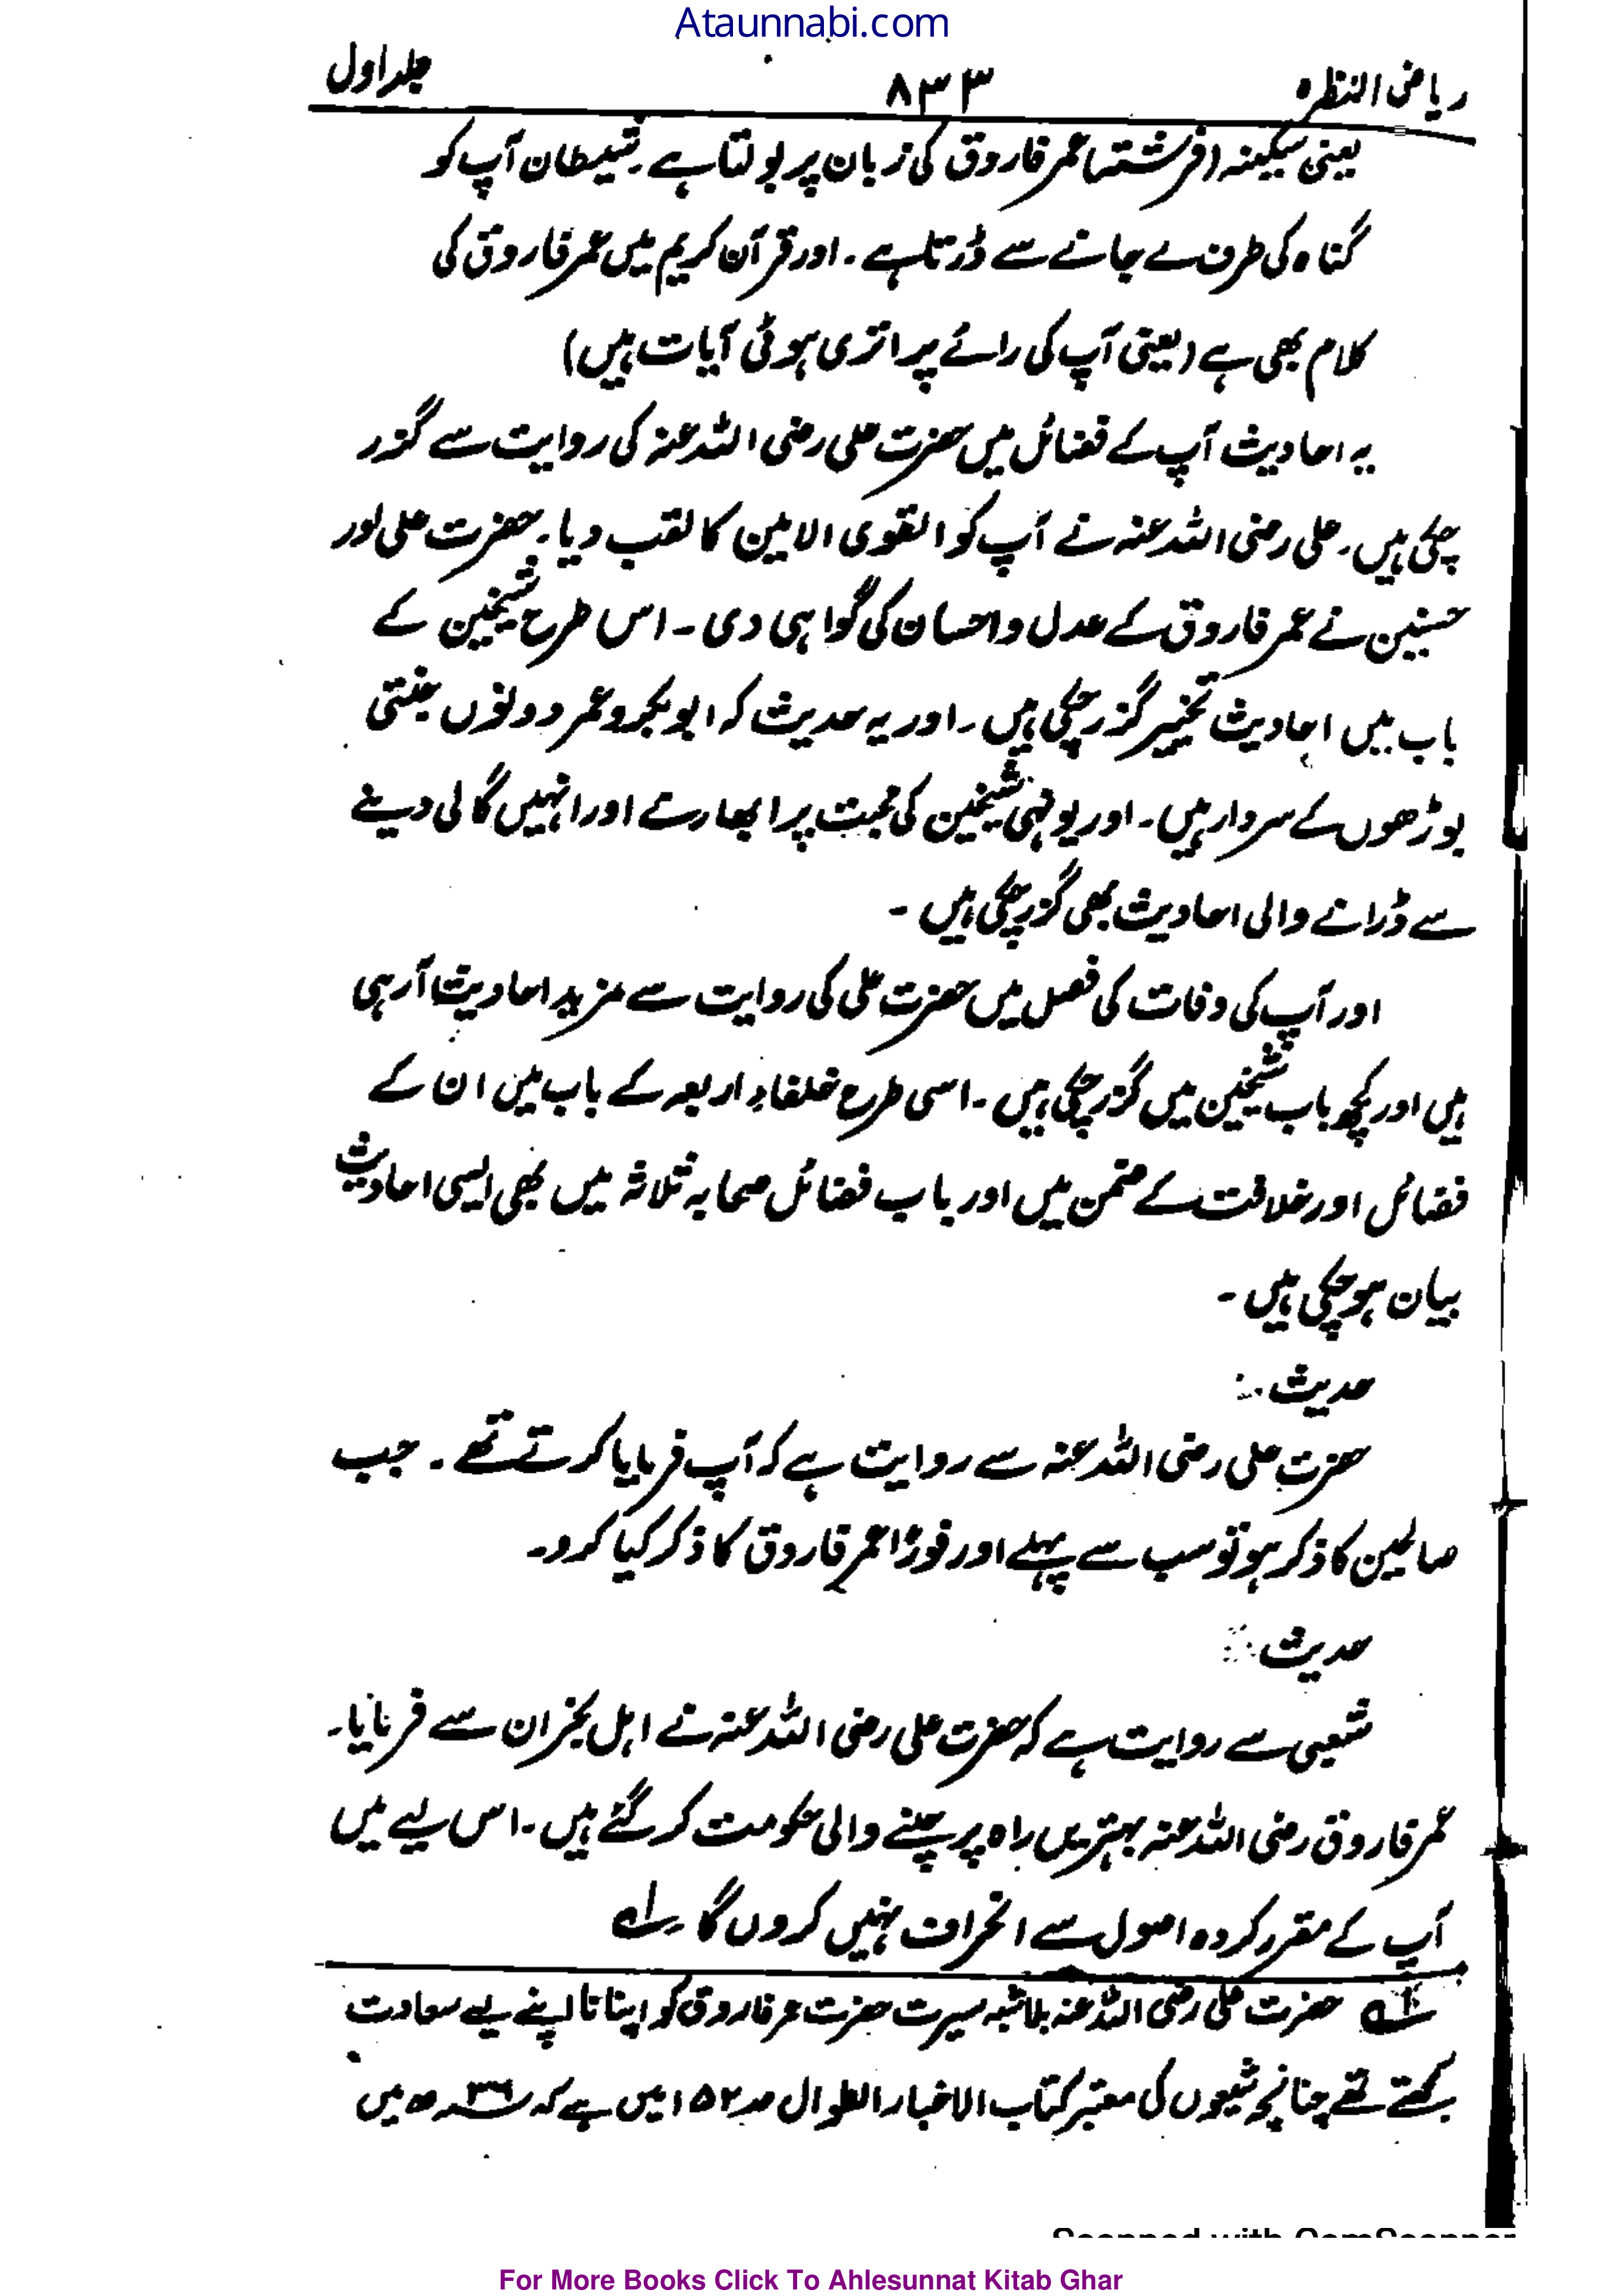 Ataunnabi.com
ریاض النظرہ ۸۳۳ جلد اول
یعنی سکینہ (فرشتہ) عمر فاروق کی زبان پر بولتا ہے۔ شیطان آپ کو
گناہ کی طرف لے جانے سے ڈرتا ہے۔ اور قرآن کریم میں عمر فاروق کی
کلام بھی ہے (یعنی آپ کی رائے پر اتری ہوئی آیات ہیں)
یہ احادیث آپ کے فضائل میں حضرت علی رضی اللہ عنہ کی روایت سے گزر
چکی ہیں۔ علی رضی اللہ عنہ نے آپ کو القوی الامین کا لقب دیا۔ حضرت علی اور
حسنین نے عمر فاروق کے عدل و احسان کی گواہی دی۔ اس طرح شیخین کے
باب میں احادیث تخییر گزر چکی ہیں۔ اور یہ حدیث کہ ابوبکر و عمر دونوں جنتی
بوڑھوں کے سردار ہیں۔ اور یونہی شیخین کی محبت پر ابھارنے اور انہیں گالی دینے
سے ڈرانے والی احادیث بھی گزر چکی ہیں۔
اور آپ کی وفات کی فصل میں حضرت علی کی روایت سے مزید احادیث آرہی
ہیں اور کچھ باب شیخین میں گزر چکی ہیں۔ اسی طرح خلفاء اربعہ کے باب میں ان کے
فضائل اور خلافت کے ضمن میں اور باب فضائل صحابہ ثلاثہ میں بھی ایسی احادیث
بیان ہو چکی ہیں۔
حدیث:
حضرت علی رضی اللہ عنہ سے روایت ہے کہ آپ فرمایا کرتے تھے۔ جب
صالحین کا ذکر ہو تو سب سے پہلے اور فوراً عمر فاروق کا ذکر کیا کرو۔
حدیث:
شعبی سے روایت ہے کہ حضرت علی رضی اللہ عنہ نے اہل نجران سے فرمایا۔
عمر فاروق رضی اللہ عنہ بہتریں راہ پر چلنے والی حکومت کر گئے ہیں۔ اس لیے میں
آپ کے مقرر کردہ اصول سے انحراف نہیں کروں گا۔ لہ
لہ حضرت علی رضی اللہ عنہ بلاشبہ سیرت حضرت عمر فاروق کو اپنانا اپنے لیے سعادت
رکھتے تھے چنانچہ شیعوں کی معتبر کتاب الاخبار الطوال صـ ۱۵۲ میں ہے کہ ۳۶ھ میں
For More Books Click To Ahlesunnat Kitab Ghar